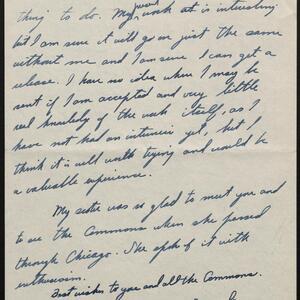 thing to do. My work at is interesting
but I am sure it will go on just the same
without me and I am sure I can get a
release. I have no idea where I may be
sent if I am accepted and very little
real knowledge of the work itself, as I
have not had an interview yet, but I
think it is well worth trying and would be
a valuable experience.
My sister was so glad to meet you and
to see the Commons when she passed
through Chicago. She spoke of it with
enthusiasm.
Best wishes to you and all the Commons.